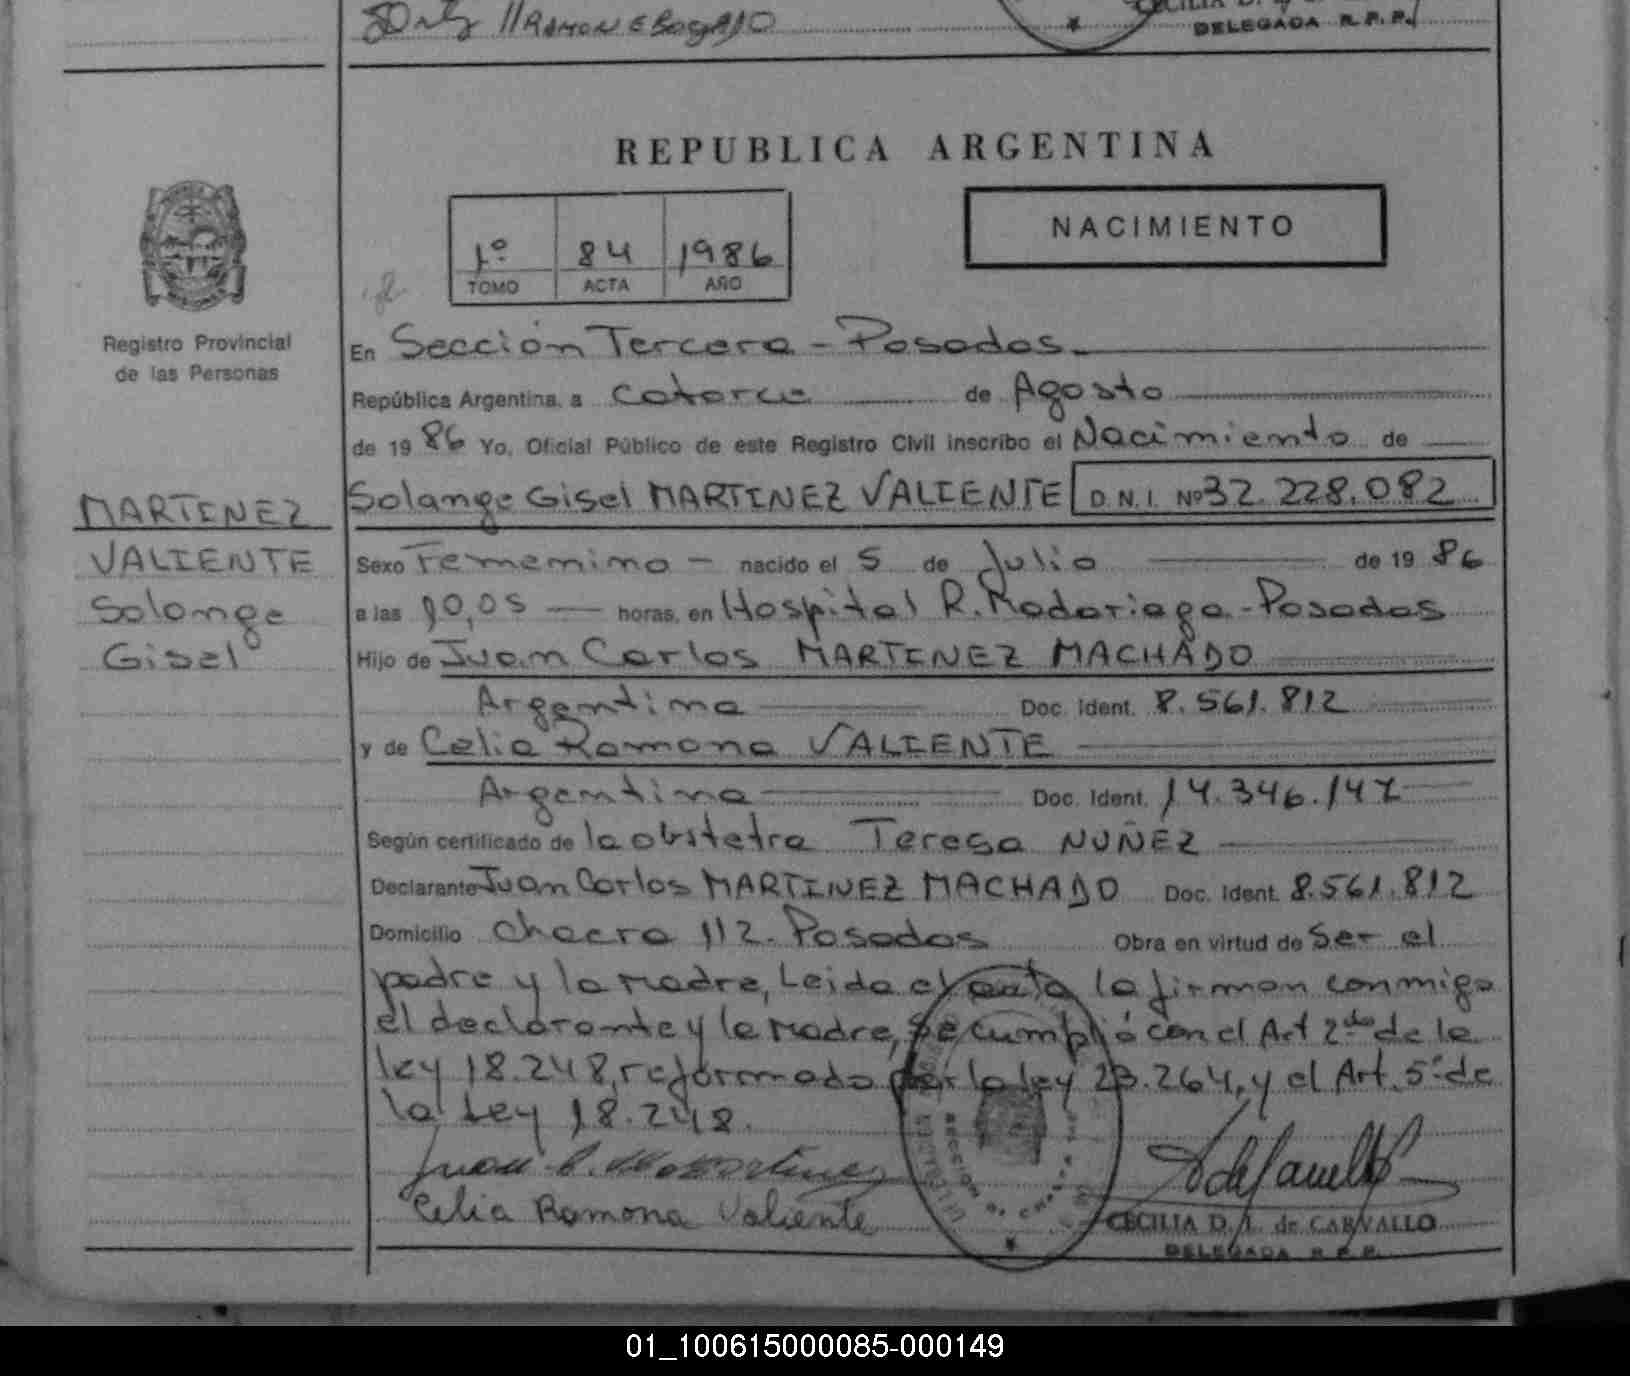 RAMON E BOGADO
DELEGADA R.P.P.
REPUBLICA ARGENTINA
1º 84 1986
TOMO ACTA AÑO
NACIMIENTO
Registro Provincial
de las Personas
MARTINEZ
VALIENTE
Solange
Gisel
En Sección Tercera - Posadas
República Argentina, a catorce de Agosto
de 1986 Yo, Oficial Público de este Registro Civil inscribo el Nacimiento de
Solange Gisel MARTINEZ VALIENTE D.N.I. Nº 32.228.082
Sexo Femenino - nacido el 5 de Julio de 1986
a las 10,05 horas, en Hospital R. Madariaga - Posadas
Hijo de Juan Carlos MARTINEZ MACHADO
Argentina Doc. Ident. 8.561.812
y de Celia Ramona VALIENTE
Argentina Doc. Ident. 14.346.147
Según certificado de la obstetra Teresa NUÑEZ
Declarante Juan Carlos MARTINEZ MACHADO Doc. Ident. 8.561.812
Domicilio Chacra 112 - Posadas Obra en virtud de Ser el
padre y la Madre, Leida el acta la firman conmigo
el declarante y la Madre, Se cumplió con el Art 2do de la
ley 18.248, reformado por la ley 23.264, y el Art. 5º de
la Ley 18.248.
Juan C. Martinez
Celia Ramona Valiente
CECILIA D. L. de CARVALLO
DELEGADA R.P.P.
01_100615000085-000149